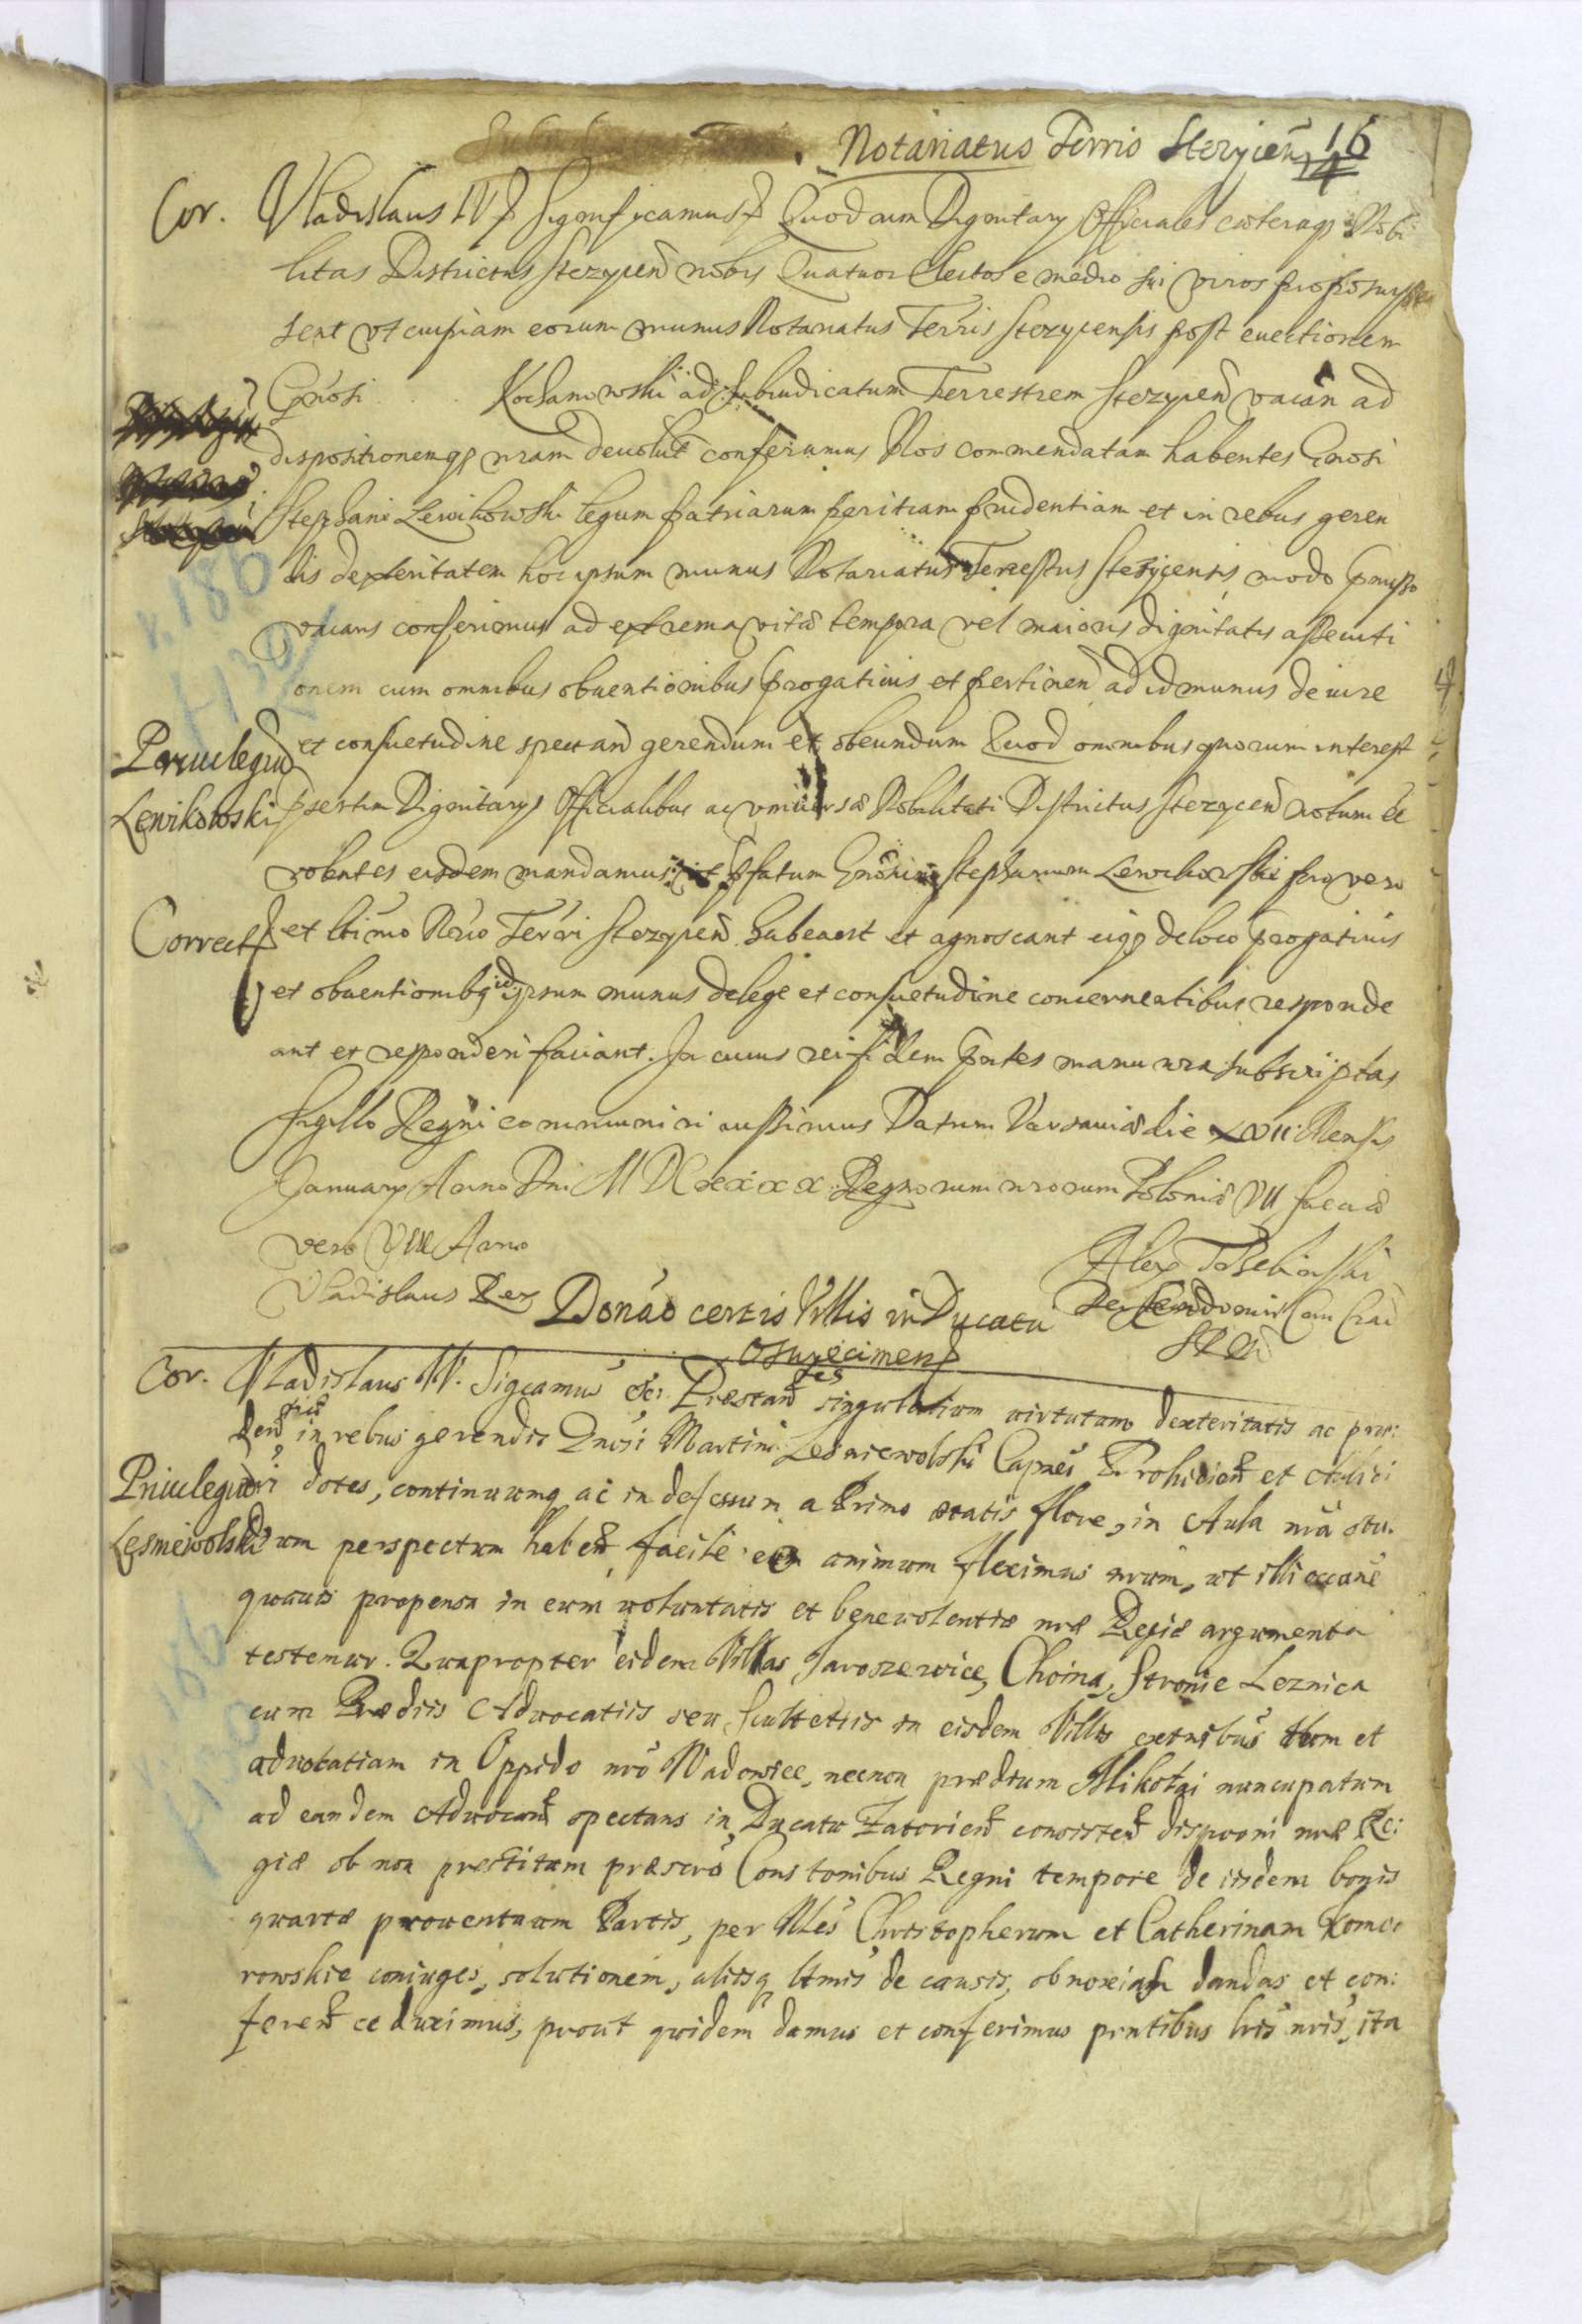 Notariatus Terris Stezycen 16
Cor. Vladislaus IV Significamus Quod cum Dignitarij Officiales caeteraq Nobi
litas Districtus Stezycen nobis Quatuor Electos e medio sui viros proposuis
sent vt cuipiam eorum munus Notariatus Terris Stezycensis post euectionem
Gnosi Kochanowski ad Subiudicatum Terrestrem Stezycen vacan ad
dispositionemq nram deuolut conferamus Nos commendatam habentes Gnosi
Stephani Lewikowski legum patriarum peritiam prudentiam et in rebus geren
dis dexteritatem hoc ipsum munus Notariatus Terrestris Stezycensis modo pmisso
vacans conferimus ad extrema vitae tempora vel maioris dignitatis assecuti
onem cum omnibus obuentionibus progatiuis et pertinen ad id munus de iure
et consuetudine spectan gerendum et obeundum Quod omnibus quorum interest
Priuilegiu
Lewikowski
psertim Dignitarijs Officialibus ac vniuersae Nobilitati Districtus Stezycen notum ee
volentes eisdem mandamus vt pfatum Gnosum Stephanum Lewikowski pro vero
Correct
et ltimo Nrio Terri Stezycen habeant et agnoscant eiq de loco progatiuis
et obuentionibq id ipsum munus de lege et consuetudine concernentibus responde
ant et responderi faciant. In cuius rei fidem pntes manu nra subscriptas
Sigillo Regni communiri iussimus Datum Varsauiae die XVII Mensis
January Anno Dni MDCxxxx Regnorum nrorum Poloniae VII Sueciae
vero VIII Anno
Vladislaus Rex
Alex Trzebinski
Donao certis Villis in Ducatu
Osuiecimen
Cor. Vladislaus IV. Sigcamus &c. Praestan singularium virtutum dexteritatis ac pru:
den in rebus gerendis Gnosi Martini Lesniewolski Capnei Drohicien et Aulici
Priuilegium
nri dotes, continuumq ac indefessum a primo aetatis flore, in Aula nra stu:
Lesniewolski
dium perspectum haben facile eo animum fleximus nrum, ut illi occane
quauis propensa in eum uoluntatis et beneuolentiae nrae Regiae argumenta
testemur. Quapropter eidem Villas Jaroszewice, Choina, Stronie Leznica
cum Praediis Aduocatiis seu Scultetiis in eisdem Villis extnibus tum et
aduocatiam in Oppido nro Wadowice, necnon praedium Mikołai nuncupatum
ad eandem Aduocan spectans in Ducatu Zatorien consisten dispooni nrae Re:
giae ob non praestitam praescro Constonibus Regni tempore de iisdem bonis
quartae prouentuum Partis, per Mcos Christopherum et Catherinam Komo:
rowskie coniuges, solutionem, aliisq ltmis de causis, obnoxias dandas et con:
feren ee duximus, prout quidem damus et conferimus pntibus lris nris, ita